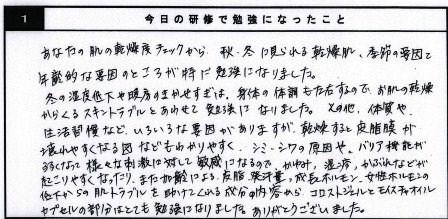 1 今日の研修で勉強になったこと
あなたの肌の乾燥度チェックから、秋・冬に見られる乾燥肌、季節の要因と
年齢的な要因のところが特に勉強になりました。
冬の湿度低下や暖房のきかせすぎは、身体の体調も左右するので、お肌の乾燥
からくるスキントラブルとあわせて勉強になりました。その他、体質や
生活習慣など、いろいろな要因がありますが、乾燥すると皮脂膜が
壊れやすくなる図などもわかりやすく、シミ・シワの原因や、バリア機能が
弱くなって様々な刺激に対して敏感になるので、かゆみ、湿疹、かぶれなどが
起こりやすくなったり、また加齢による、皮脂、発汗量、成長ホルモン、女性ホルモンの
低下からの肌トラブルを助けてくれる成分の内容から、コロストジェルとモイスチャオイル
カプセルの部分はとても勉強になりました。ありがとうございました。